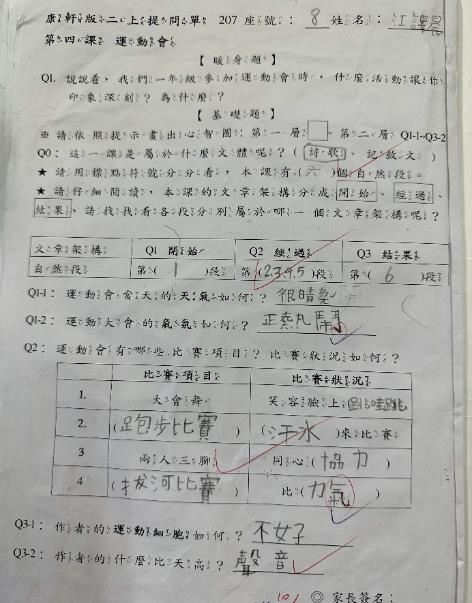 康軒版二上提問單 207 座號：8 姓名：江
第四課 運動會
【暖身題】
Q1. 說說看，我們一年級參加運動會時，什麼活動讓你
印象深刻？為什麼？
【基礎題】
※請依照提示畫出心智圖：第一層□、第二層 Q1-1~Q3-2
Q0：這一課是屬於什麼文體呢？（詩歌、記敘文）
★請用標點符號分分看，本課有(六)個自然段。
★請仔細閱讀，本課的文章架構分成開始、經過、
結果，請找找看各段分別屬於哪一個文章架構呢？
文章架構 Q1 開始 Q2 經過 Q3 結果
自然段 第(1)段 第(2.3.4.5)段 第(6)段
Q1-1：運動會當天的天氣如何？很晴
Q1-2：運動大會的氣氛如何？正熱鬧
Q2：運動會有哪些比賽項目？比賽狀況如何？
比賽項目 比賽狀況
1. 大會舞 笑容臉上
2. (跑步比賽) (汗水)來比賽
3 兩人三腳 同心(協力)
4 (拔河比賽) 比(力氣)
Q3-1：作者的運動細胞如何？不好
Q3-2：作者的什麼比天高？聲音
10/ ◎家長簽名：